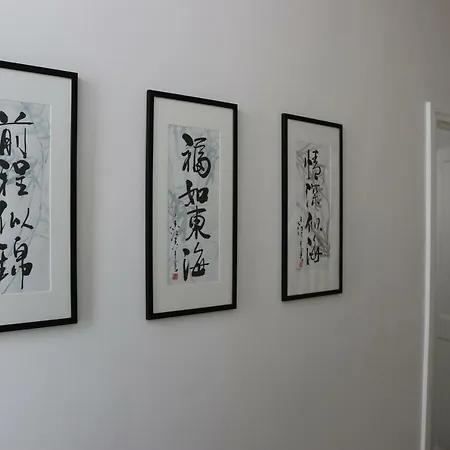 前程似錦
福如東海
情深似海